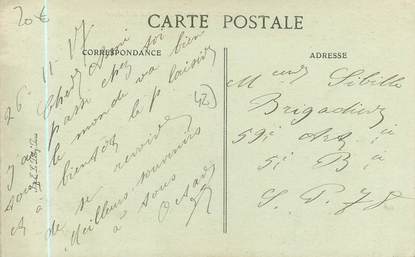 20€
CARTE POSTALE
CORRESPONDANCE
ADRESSE
26-11-17
Cher Ami
passé chez toi
tout le monde va bien
et à bientôt le plaisir
de se revoir
Meilleurs souvenirs
à tous
(42)
Sibille
Brigadier
59e Art ie
5e Bie
S. P. 78